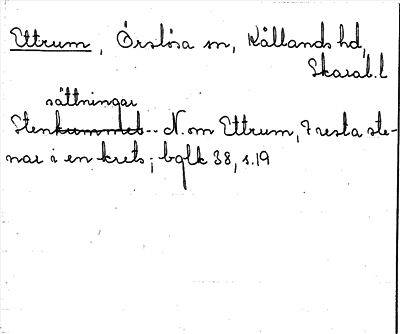 Ettrum, Örslösa sn, Kållands hd,
Skarab. l
sättningar
Sten -- N. om Ettrum, 7 resta ste-
nar i en krets; bglk 38, s. 19